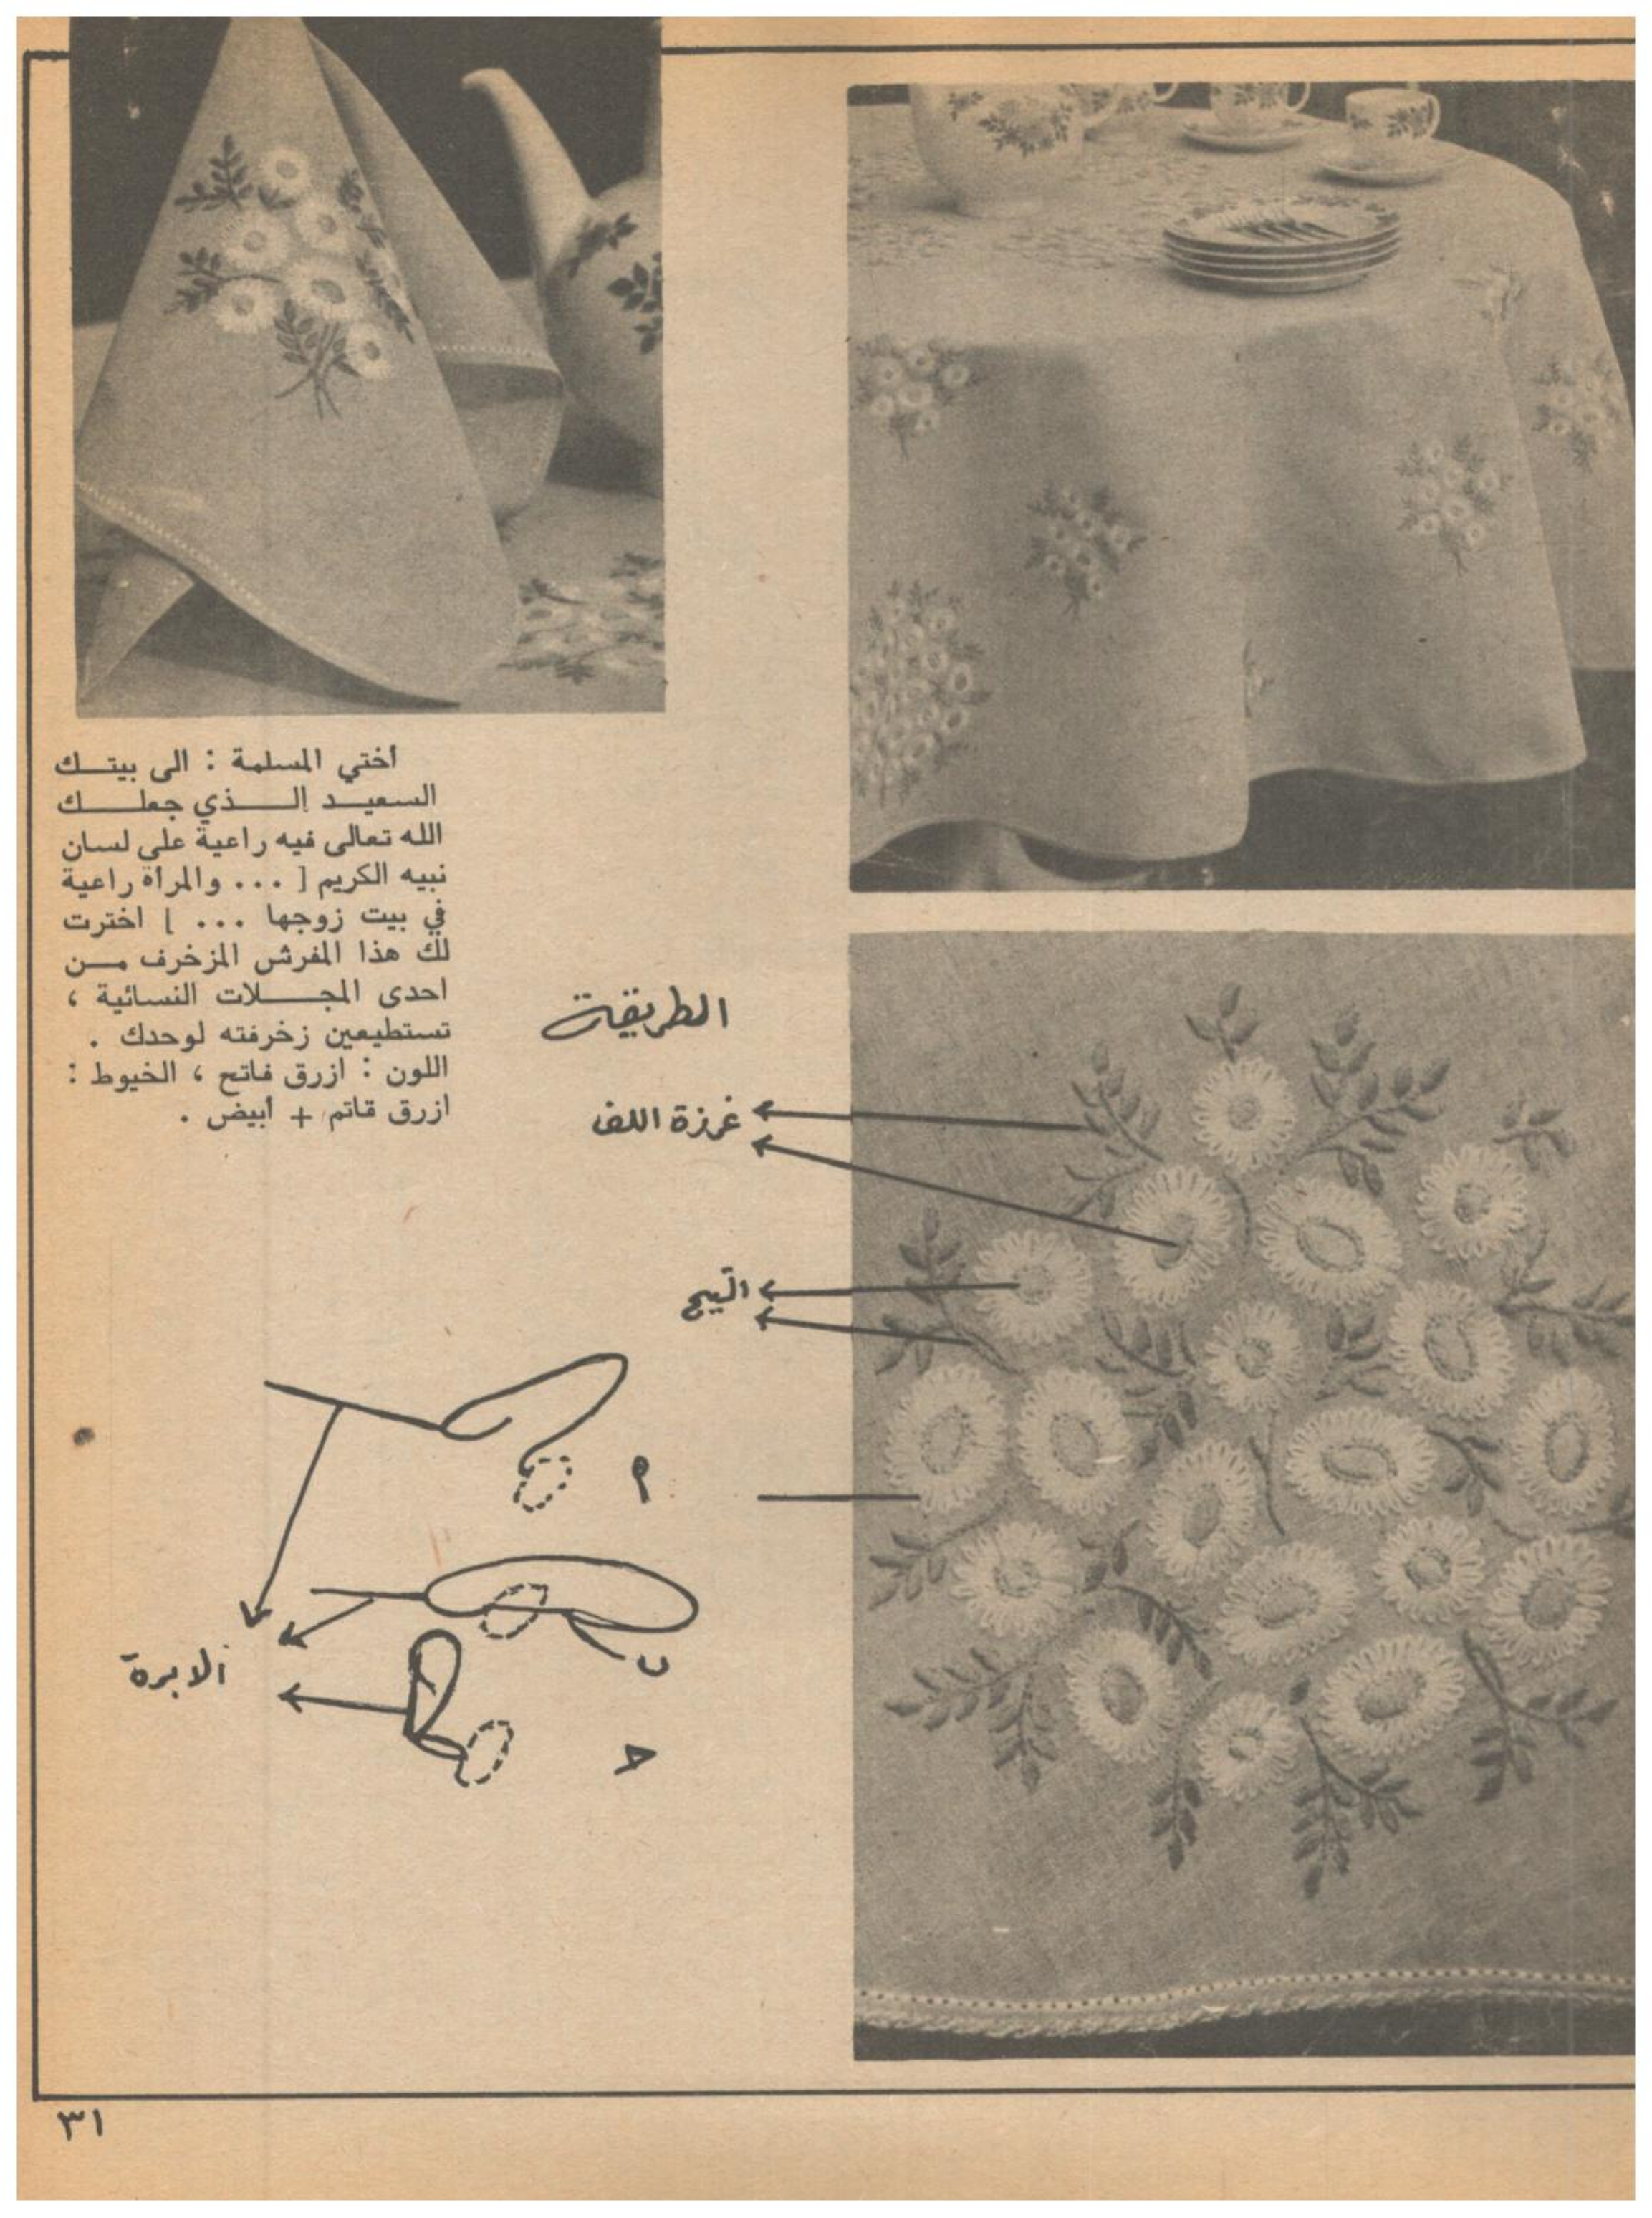 أختي المسلمة : الى بيتـــك
السعيــد الـــذي جعلـــك
الله تعالى فيه راعية على لسان
نبيه الكريم [ ... والمرأة راعية
في بيت زوجها ... ] اخترت
لك هذا المفرش المزخرف مــن
احدى المجـــلات النسائية ،
تستطيعين زخرفته لوحدك .
اللون : ازرق فاتح ، الخيوط :
ازرق قاتم + أبيض .
الطريقة
غرزة اللف
أ
ب
الابرة
ح
٣١